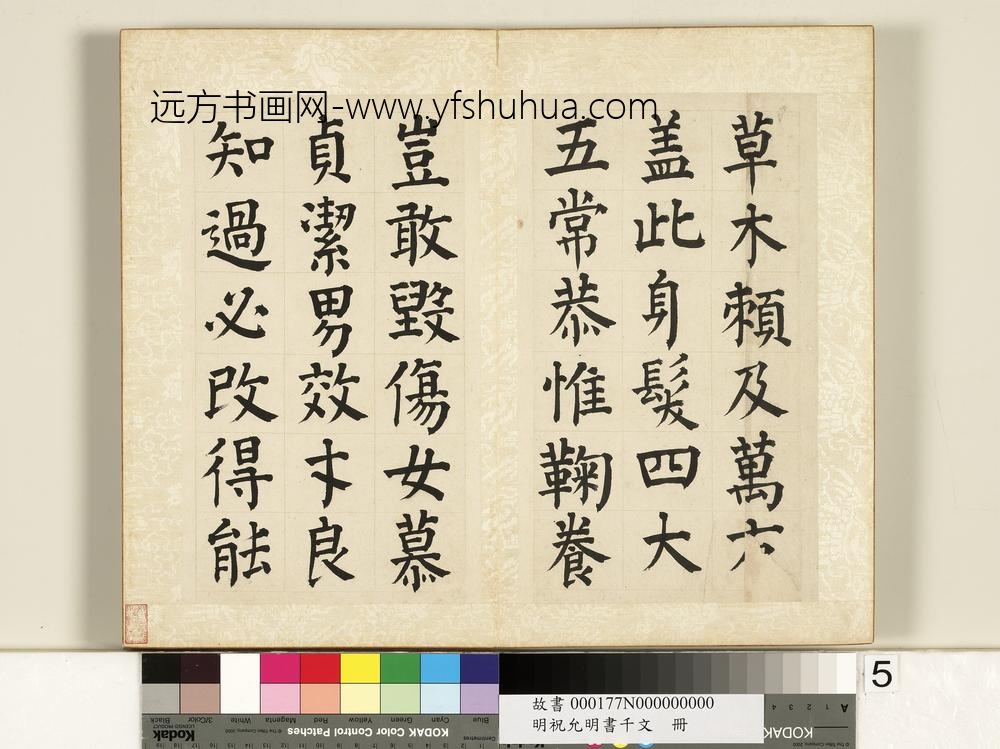 远方书画网-www.yfshuhua.com
草木頼及萬
盖此身髮四大
五常恭惟鞠養
豈敢毀傷女慕
貞潔男效才良
知過必改得能
5
故書 000177N000000000
明祝允明書千文 冊
Blue Cyan Green Yellow Red Magenta White 3/Color Black
KODAK Color Control Patches
© The Tiffen Company, 2000
Kodak
LICENSED PRODUCT
Centimetres
A 1 2 3 4
KODAK